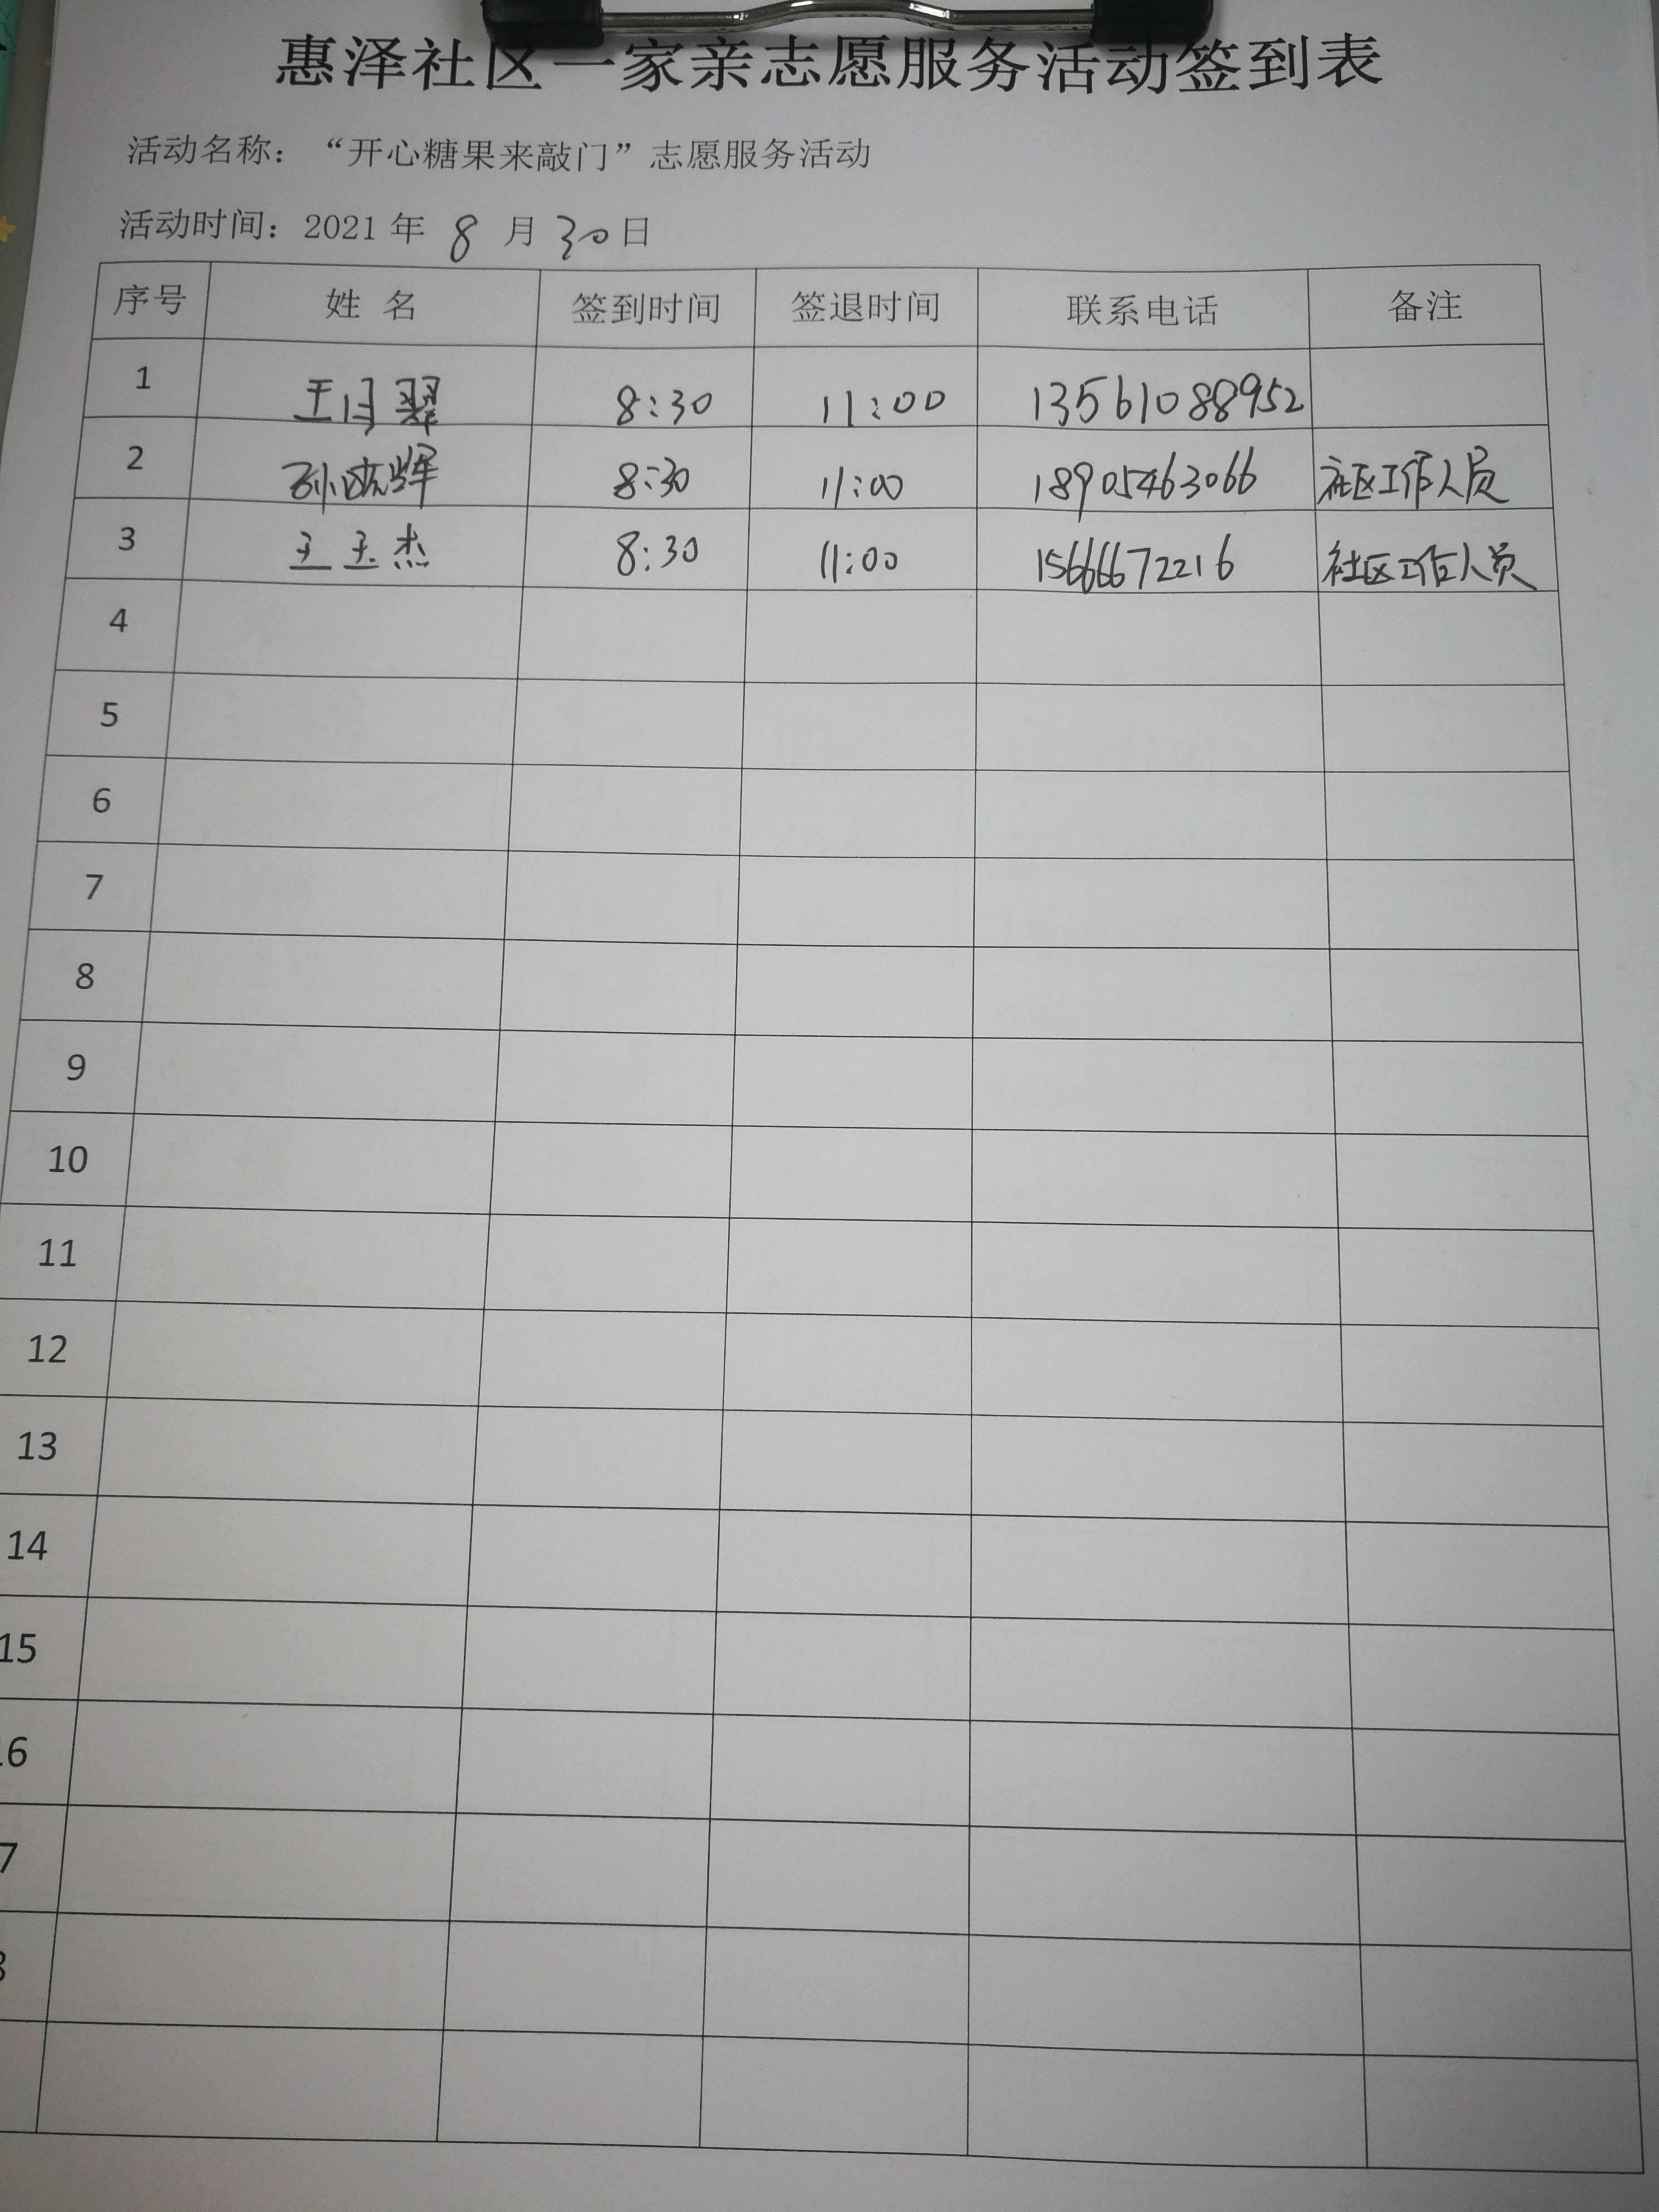 惠泽社区一家亲志愿服务活动签到表
活动名称：“开心糖果来敲门”志愿服务活动
活动时间：2021 年 8 月 30 日
序号 姓 名 签到时间 签退时间 联系电话 备注
1 王月翠 8:30 11:00 13561088952
2 孙晓辉 8:30 11:00 18905463066 社区工作人员
3 王玉杰 8:30 11:00 15666672216 社区工作人员
4
5
6
7
8
9
10
11
12
13
14
15
16
7
8